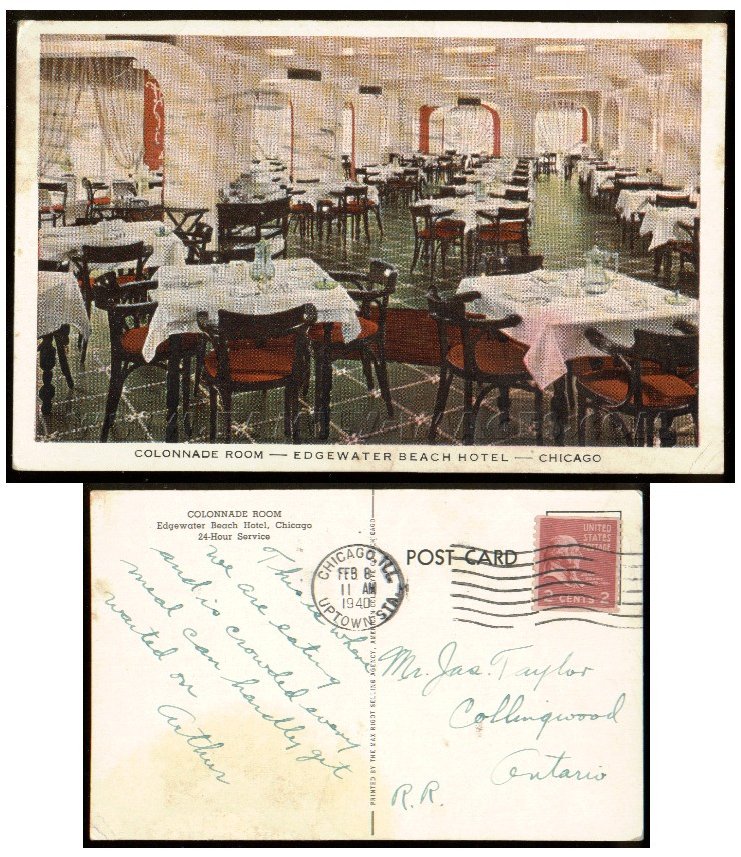 COLONNADE ROOM — EDGEWATER BEACH HOTEL — CHICAGO
COLONNADE ROOM
Edgewater Beach Hotel, Chicago
24-Hour Service
This is where
we are eating
and is crowded every
meal can hardly get
waited on
Arthur
CHICAGO, ILL.
FEB 8
11 AM
1940
UPTOWN STA.
POST CARD
UNITED
STATES
POSTAGE
2 CENTS 2
Mr. Jas. Taylor
Collingwood
Ontario
R.R.